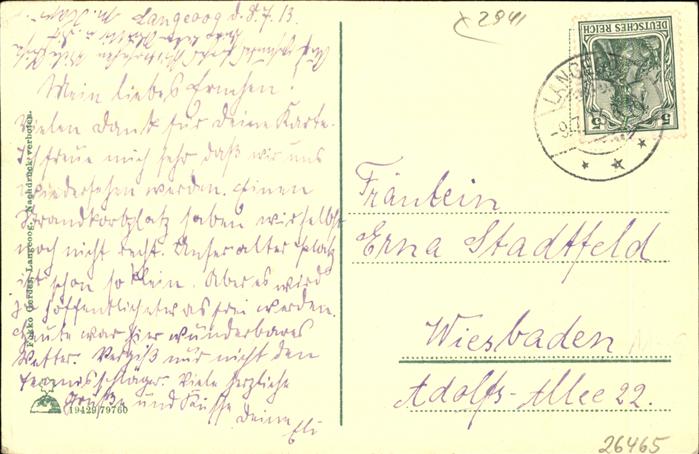 Langeoog d. 8.7.13.
Mein liebes Ernchen!
Vielen Dank für Deine Karte.
Ich freue mich sehr daß wir uns
wiedersehen werden. Einen
Strandkorbplatz haben wir selbst
noch nicht recht. Unser alter Platz
ist schon so klein. Aber es wird
ja hoffentlich etwas frei werden.
Heute war hier wunderbares
Wetter. Vergiß nur nicht den
Tennisschläger. Viele herzliche
Grüße und Küsse
Deine
Eli
Fokko Gerdes, Langeoog. Nachdruck verboten.
19429/79760
2941
DEUTSCHES REICH
5 5
LANGEOOG
Fräulein
Erna Stadtfeld
Wiesbaden
Adolfs-Allee 22.
26465